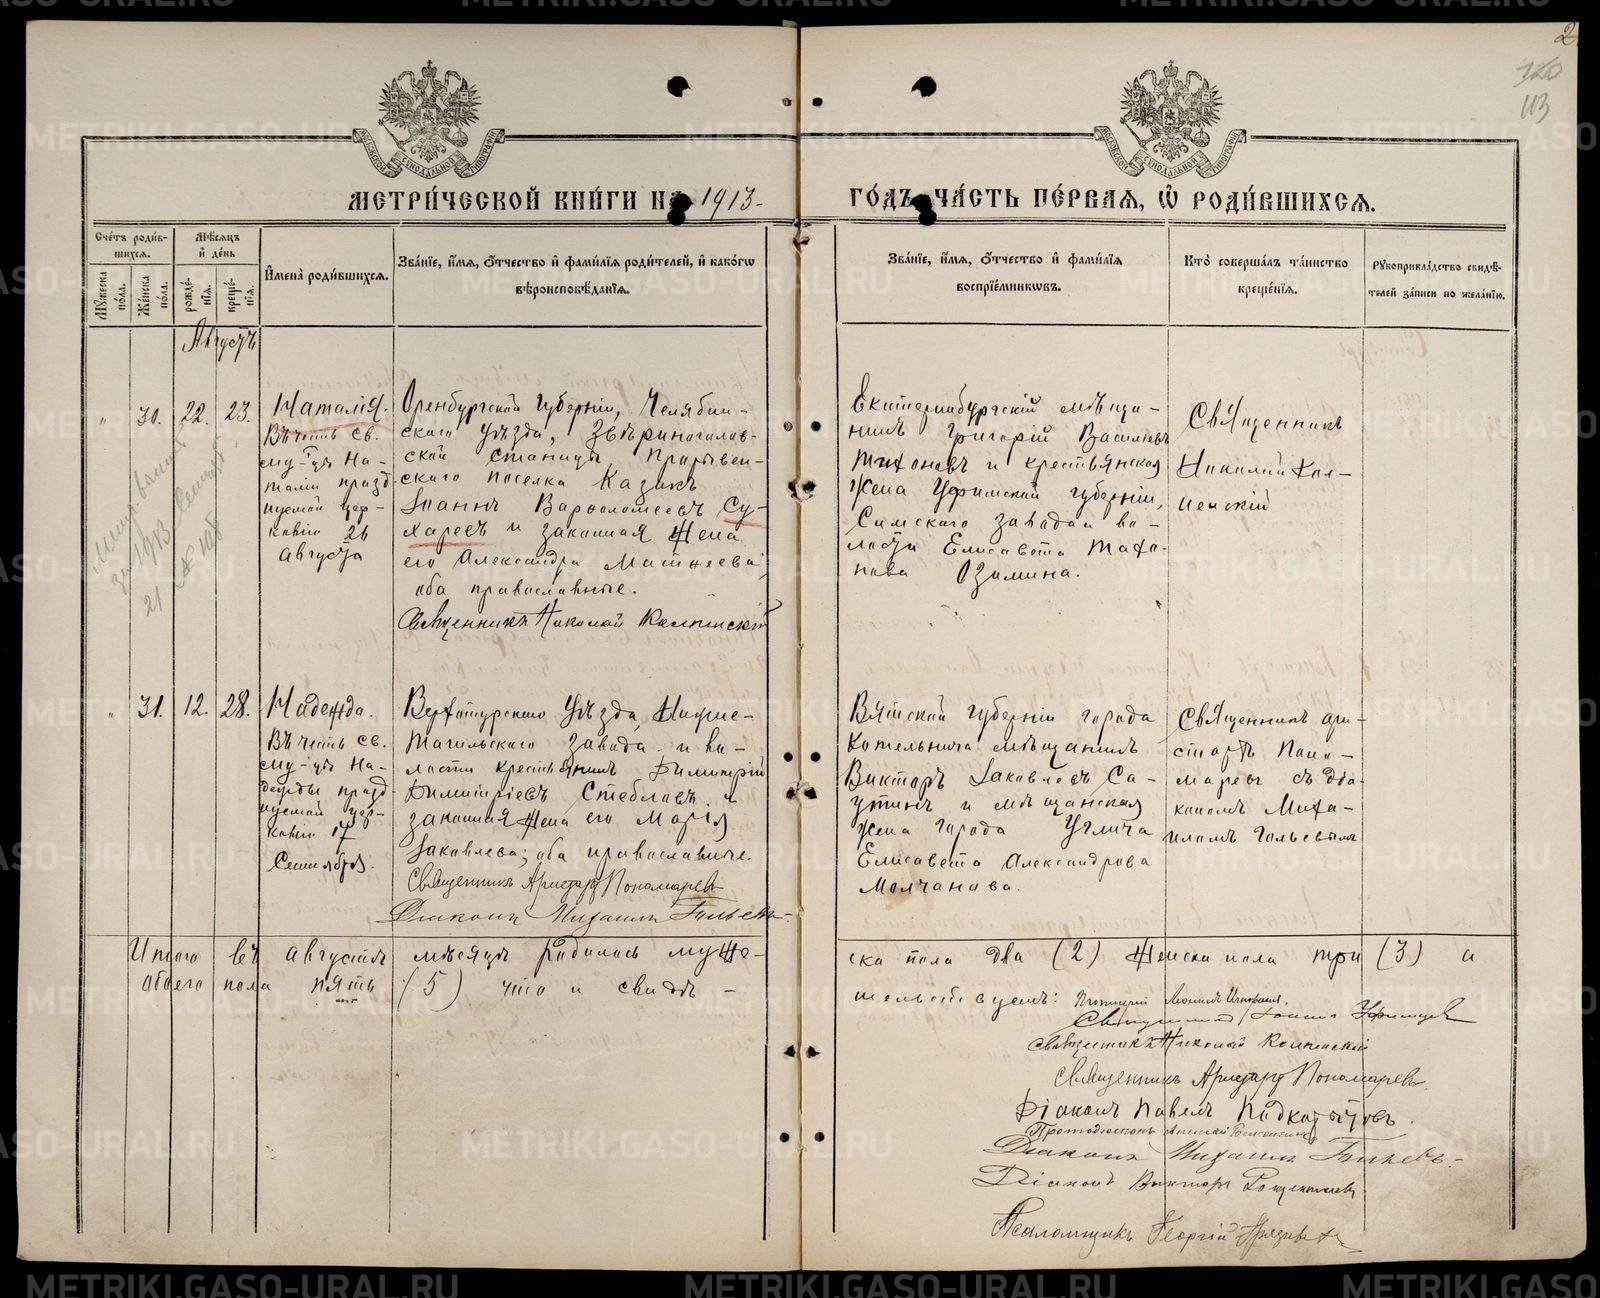 2
120
113
МЕТРИ́ЧЕСКОЙ КНИ́ГИ НА 1913-
ГО́ДЪ, ЧА́СТЬ ПЕ́РВАЯ, Ѡ РОДИ́ВШИХСЯ.
Сче́тъ роди́в-
шихся.
Мѣ́сяцъ
и де́нь
Му́жеска по́ла.
Же́нска по́ла.
рожде́-
нїя.
креще́-
нїя.
И҆мена̀ роди́вшихся.
Зва́нїе, и҆́мя, ѻ҆́тчество и҆ фами́лїя роди́телей, и҆ како́гѡ
вѣроисповѣ́данїя.
Зва́нїе, и҆́мя, ѻ҆́тчество и҆ фами́лїя
воспрїе́мникѡвъ.
Кто̀ соверша́лъ та́инство
креще́нїя.
Рукоприкла́дство свидѣ́-
телей за́писи по жела́нїю.
Августъ
" 30. 22. 23.
Наталія.
Въ честь св.
муч-цы На-
таліи празд
нуемой цер-
ковію 26
августа
Оренбургской губерніи, Челябин-
скаго уѣзда, Звѣриноголов-
ской станицы, Прорывин-
скаго поселка Казакъ
Іоаннъ Варѳоломеевъ Су-
харевъ и законная жена
его Александра Матѳеева,
оба православные.
Священникъ Николай Колпинскій
Екатеринбургскій мѣща-
нинъ Григорій Васильевъ
Тихоновъ и крестьянская
жена Уфимской губерніи,
Симскаго завода и во-
лости Елисавета Тихо-
нова Озимина.
Священникъ
Николай Кол-
пинскій
" 31. 12. 28.
Надежда.
Въ честь св.
муч-цы На-
дежды празд
нуемой цер-
ковію 17
Сентября.
Верхотурскаго уѣзда, Нижне-
тагильскаго завода и во-
лости крестьянинъ Димитрій
Димитріевъ Стебловъ и
законная жена его Марія
Іаковлева; оба православные.
Священникъ Аристархъ Пономаревъ
Діаконъ Михаилъ Гольевъ.
Вятской губерніи города
Котельнича мѣщанинъ
Викторъ Іаковлевъ Са-
утинъ и мѣщанская
жена города Углича
Елисавета Александрова
Молчанова.
Священникъ Ари-
стархъ Поно-
маревъ съ діа-
кономъ Миха-
иломъ Гольевымъ
Итого въ августѣ мѣсяцѣ родилось муже-
ска пола два (2) женска пола три (3) а
обоего пола пять (5) что и свидѣ-
тельствуемъ:
Священникъ Николай Колпинскій
Священникъ Аристархъ Пономаревъ.
Діаконъ Павелъ Подкорытовъ.
Діаконъ Михаилъ Гольевъ.
Діаконъ Викторъ
Псаломщикъ Георгій
METRIKI.GASO-URAL.RU